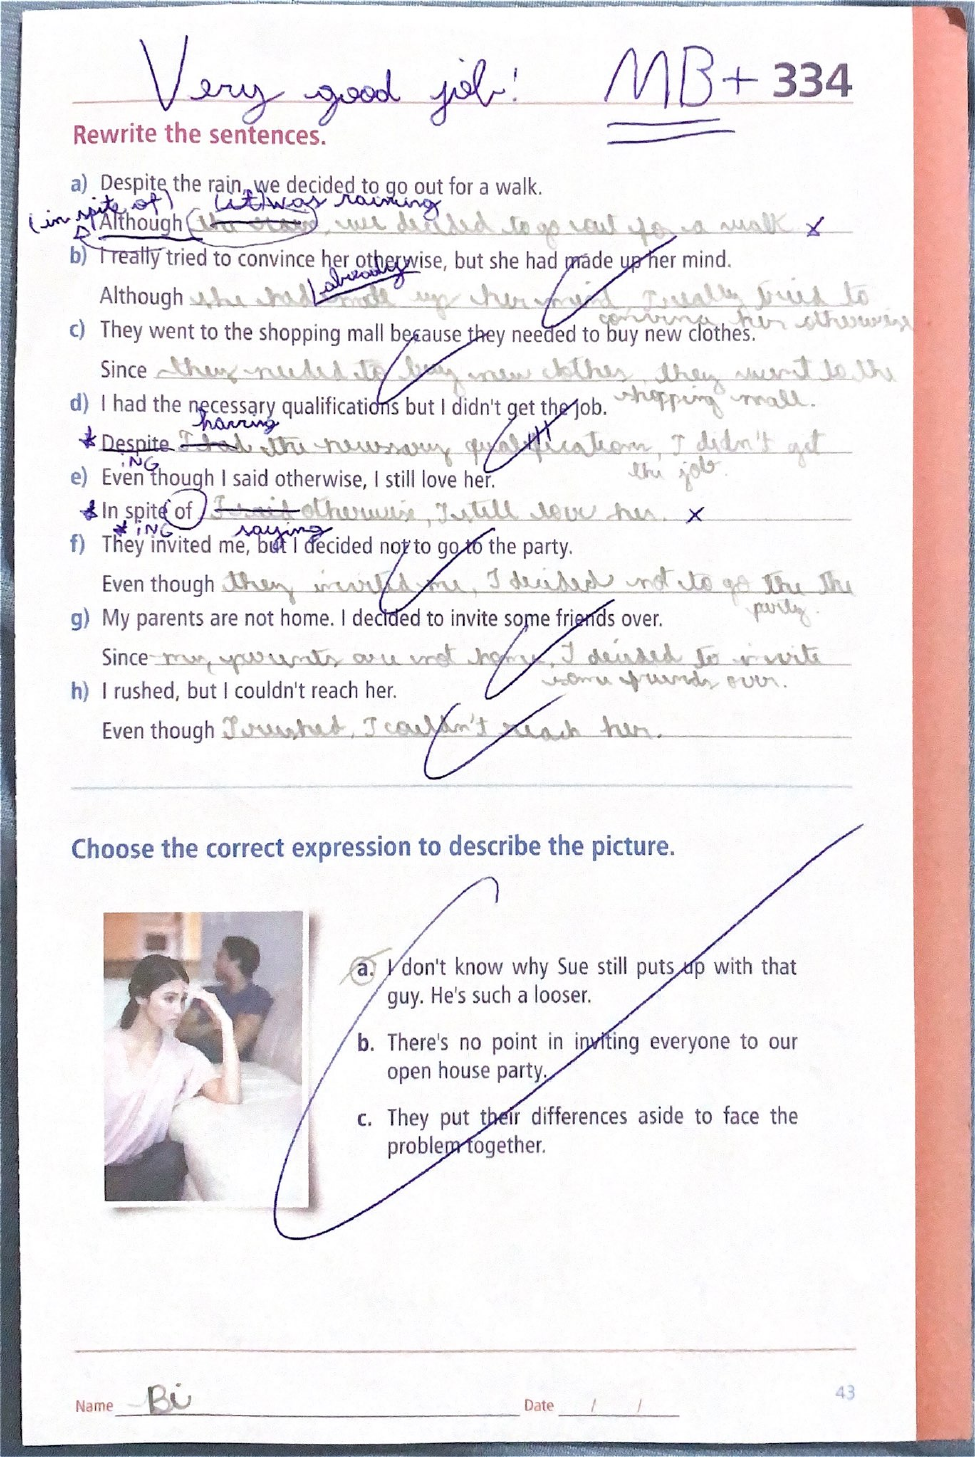 Very good job! MB+ 334
Rewrite the sentences.
a) Despite the rain, we decided to go out for a walk.
(in spite of) (it) was raining
Although the rain, we decided to go out for a walk x
b) I really tried to convince her otherwise, but she had made up her mind.
already
Although she had made up her mind, I really tried to
convince her otherwise
c) They went to the shopping mall because they needed to buy new clothes.
Since they needed to buy new clothes, they went to the
shopping mall.
d) I had the necessary qualifications but I didn't get the job.
having
* Despite I had the necessary qualifications, I didn't get
ING the job.
e) Even though I said otherwise, I still love her.
* In spite of I said otherwise, I still love her. x
* ING saying
f) They invited me, but I decided not to go to the party.
Even though they invited me, I decided not to go the the
party.
g) My parents are not home. I decided to invite some friends over.
Since my parents are not home, I decided to invite
some friends over.
h) I rushed, but I couldn't reach her.
Even though I rushed, I couldn't reach her.
Choose the correct expression to describe the picture.
a. I don't know why Sue still puts up with that
guy. He's such a looser.
b. There's no point in inviting everyone to our
open house party.
c. They put their differences aside to face the
problem together.
43
Name Bi Date / /